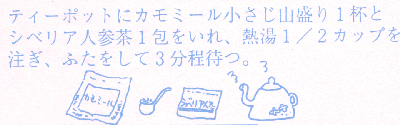 ティーポットにカモミール小さじ山盛り１杯と
シベリア人参茶１包をいれ、熱湯１／２カップを
注ぎ、ふたをして３分程待つ。
カモミール